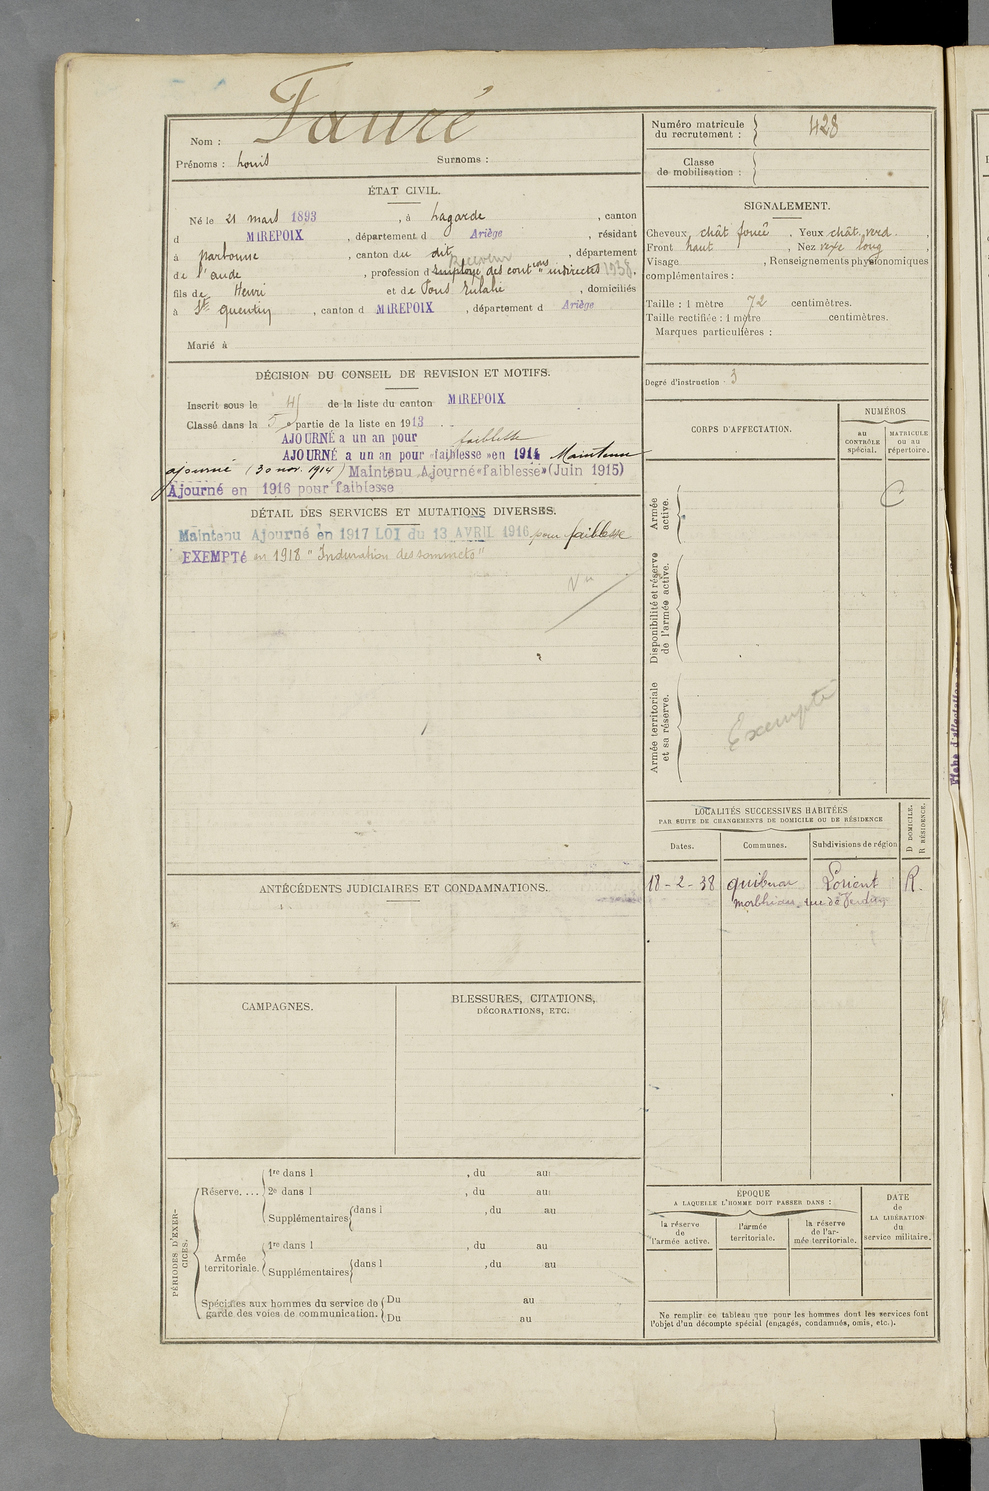 Fauré
Nom :
Prénoms : Louis Surnoms :
Numéro matricule
du recrutement : 428
Classe
de mobilisation :
ÉTAT CIVIL.
Né le 21 mars 1893, à Lagarde, canton
d MIREPOIX, département d Ariège, résidant
à Narbonne, canton du dit, département
Receveur
de l'aude, profession d employé des contions indirectes 1938.
fils de Henri et de Pons Eulalie, domiciliés
à St Quentin, canton d MIREPOIX, département d Ariège
Marié à
SIGNALEMENT.
Cheveux chât foncé, Yeux chât. verd.,
Front haut, Nez rexe long,
Visage , Renseignements physionomiques
complémentaires :
Taille : 1 mètre 72 centimètres.
Taille rectifiée : 1 mètre centimètres.
Marques particulières :
Degré d'instruction 3
DÉCISION DU CONSEIL DE REVISION ET MOTIFS.
Inscrit sous le de la liste du canton MIREPOIX
Classé dans la 5e partie de la liste en 1913
AJOURNÉ a un an pour faiblesse
AJOURNÉ a un an pour «faiblesse» en 1914 Maintenu
ajourné (30 nov. 1914) Maintenu Ajourné «faiblesse» (Juin 1915)
Ajourné en 1916 pour faiblesse
DÉTAIL DES SERVICES ET MUTATIONS DIVERSES.
Maintenu Ajourné en 1917 LOI du 13 AVRIL 1916 pour faiblesse
EXEMPTé en 1918 "Induration des sommets"
Vu
CORPS D'AFFECTATION.
NUMÉROS
AU
CONTRÔLE
spécial.
MATRICULE
ou au
répertoire.
Armée
active.
C
Disponibilité et réserve
de l'armée active.
Armée territoriale
et sa réserve.
Exempté
LOCALITÉS SUCCESSIVES HABITÉES
PAR SUITE DE CHANGEMENTS DE DOMICILE OU DE RÉSIDENCE
D DOMICILE.
R RÉSIDENCE.
Dates. Communes. Subdivisions de région
18-2-38 Quiberon Lorient R.
Morbihan, rue de Verdun
ANTÉCÉDENTS JUDICIAIRES ET CONDAMNATIONS.
CAMPAGNES.
BLESSURES, CITATIONS,
DÉCORATIONS, ETC.
PÉRIODES D'EXER-
CICES.
Réserve....
1re dans l , du au
2e dans l , du au
Supplémentaires dans l , du au
Armée
territoriale.
1re dans l , du au
Supplémentaires dans l , du au
Spéciales aux hommes du service de
garde des voies de communication.
Du au
Du au
ÉPOQUE
A LAQUELLE L'HOMME DOIT PASSER DANS :
la réserve
de
l'armée active.
l'armée
territoriale.
la réserve
de l'ar-
mée territoriale.
DATE
de
LA LIBÉRATION
du
service militaire.
Ne remplir ce tableau que pour les hommes dont les services font
l'objet d'un décompte spécial (engagés, condamnés, omis, etc.).